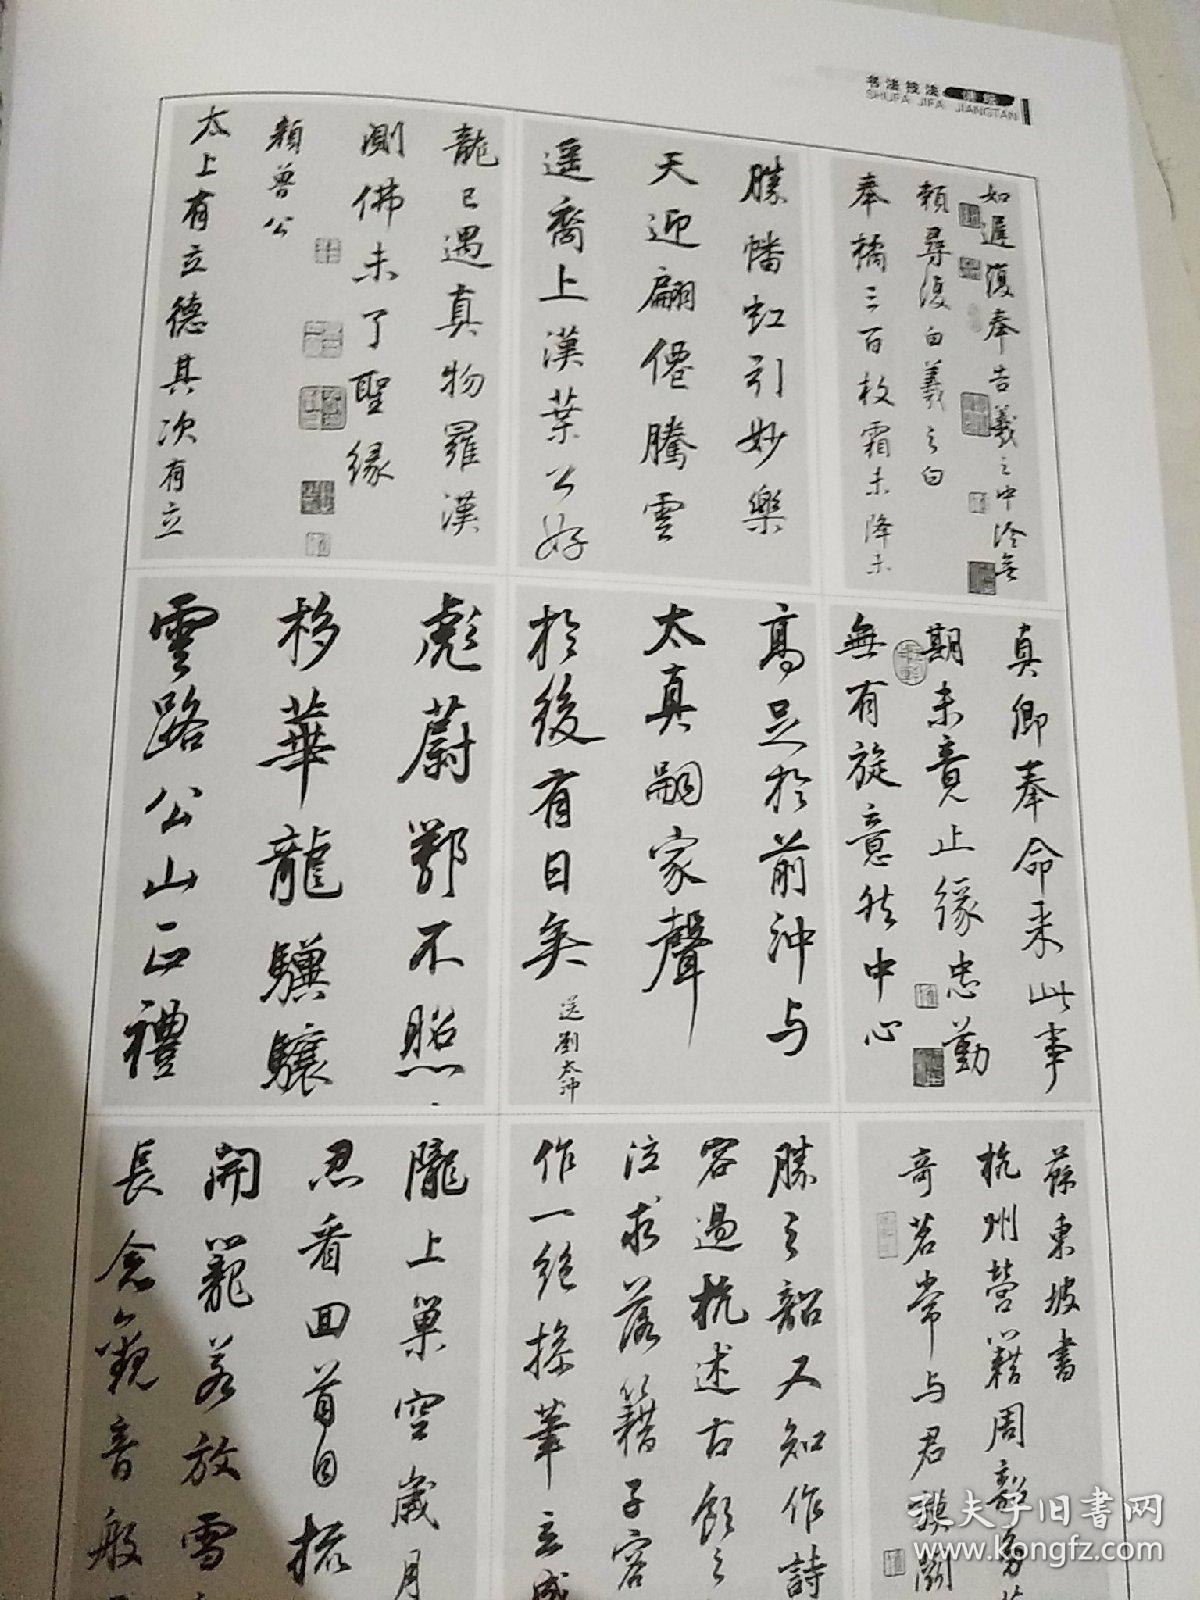 书法技法 讲坛
SHUFA JIFA JIANGTAN
如遲復奉告羲之中冷無
賴尋復白羲之白
奉橘三百枚霜未降未
勝幡虹引妙樂
天迎翩僊騰雲
遥裔上漢葉公好
龍已遇真物羅漢
測佛未了聖緣
頛魯公
太上有立德其次有立
真卿奉命来此事
期未竟止緣忠勤
無有旋意然中心
高足於前沖与
太真嗣家聲
於後有日矣
送劉太沖
彪蔚鄂不照
移華龍驥驤
雲路公山正禮
蘇東坡書
杭州營籍周韶多
奇茗常与君謨鬬
勝之韶又知作詩
容過杭述古飲之
泣求落籍子容
作一絕援筆立成
隴上巢空歲月
忍看回首自梳
開籠若放雪
長念觀音般
孔夫子旧书网
www.kongfz.com